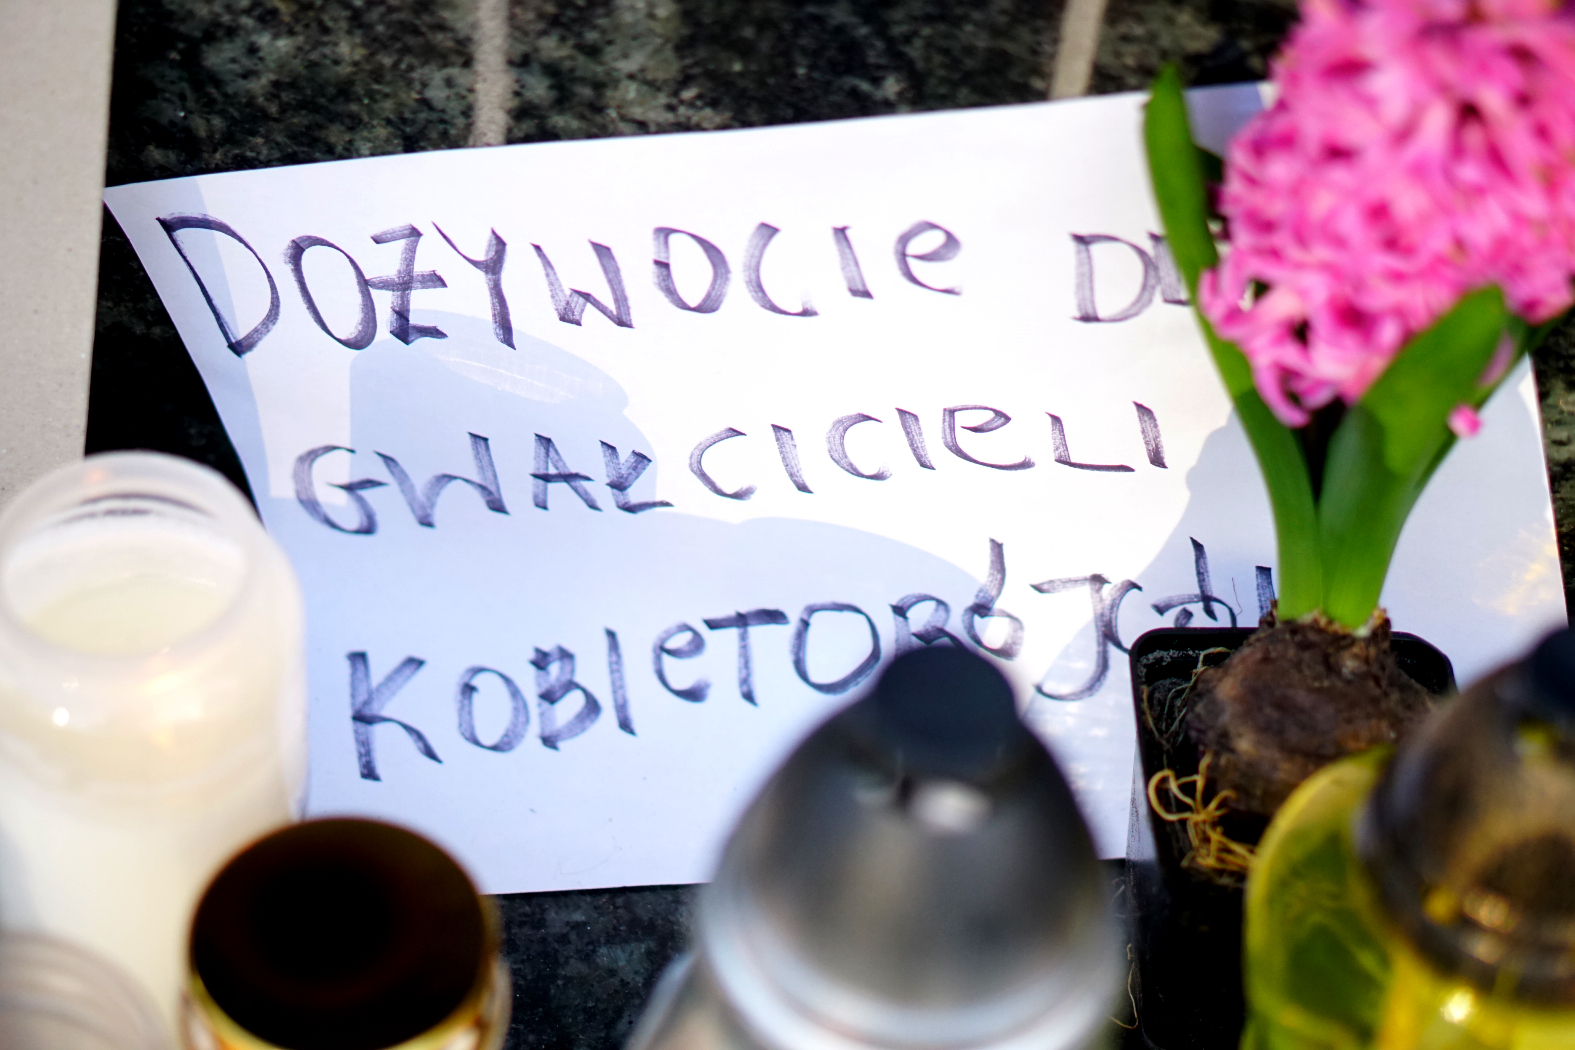 DOŻYWOCIE DL
GWAŁCICIELI
KOBIETOBÓJCÓ